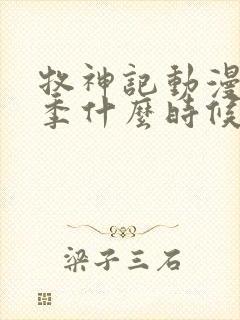 牧神記動漫
季什麼時候
梁子三石